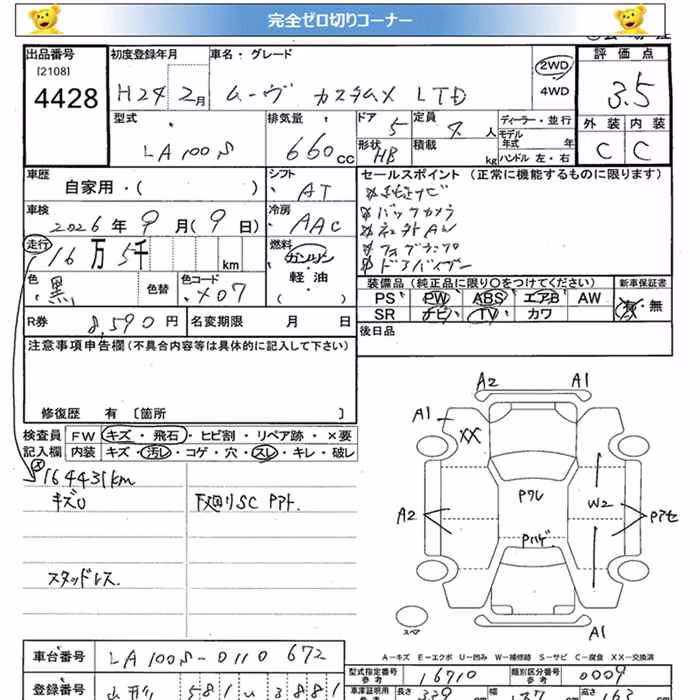 完全ゼロ切りコーナー
出品番号
[2108]
4428
初度登録年月
H24 2月
車名・グレード
ムーヴ カスタムX LTD
2WD
4WD
評価点
3.5
外装 内装
C C
型式
LA100S
排気量
660cc
ドア
5
定員
4人
形状
HB
積載
kg
ディーラー・並行
モデル年式 年
ハンドル 左・右
車歴
自家用・( )
シフト
AT
車検
2026年9月(9日)
冷房
AAC
走行
16万5千 km
燃料
ガソリン
軽・油
( )
色
黒
色替
色コード
X07
R券
8,590円
名変期限 月 日
セールスポイント (正常に機能するものに限ります)
バックカメラ
ドアバイザー
装備品(純正品に限り○をつけてください)
新車保証書
PS PW ABS エアB AW
SR ナビ TV カワ
有・無
後日品
注意事項申告欄(不具合内容等は具体的に記入して下さい)
修復歴 有 〔箇所 〕
検査員記入欄
FW キズ・飛石・ヒビ割・リペア跡・×要
内装 キズ・汚レ・コゲ・穴・スレ・キレ・破レ
164431km
キズU
下廻りSC Pアト
スタッドレス.
A2 A1
A1
XX
Pワレ
W2
A2
Pアセ
Pハゲ
スペア
A1
A‐キズ E‐エクボ U‐凹み W‐補修跡 S‐サビ C‐腐食 XX‐交換済
車台番号
LA100S-0110672
型式指定番号
16710
類別区分番号
0009
登録番号
車庫証明用参考
長さ
339
cm
幅
147
cm
高さ
cm